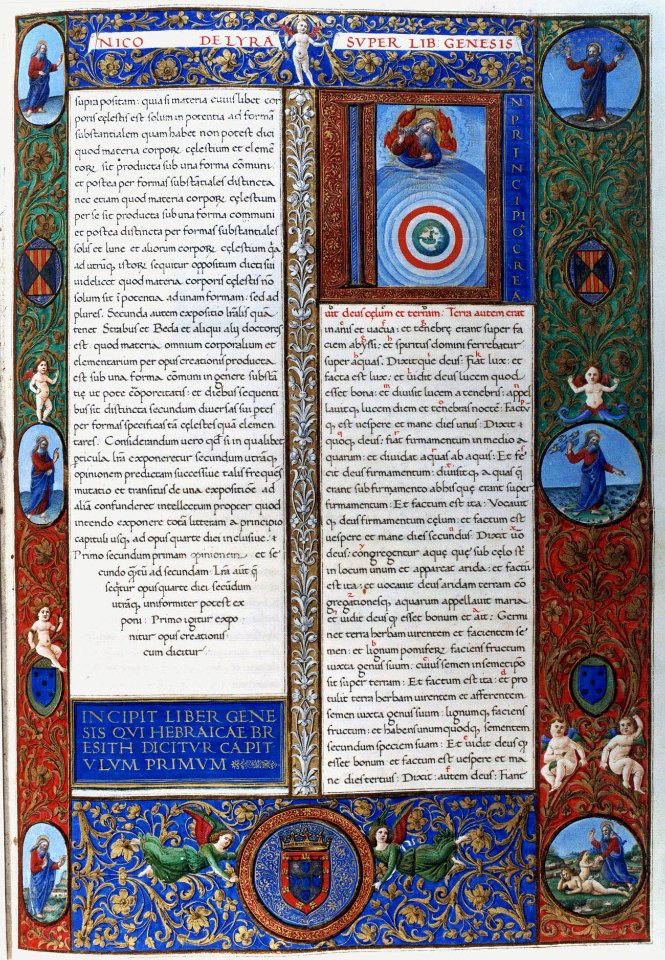 NICO DE LYRA SUPER LIB GENESIS
supra positam: quia si materia cuiuslibet cor
poris cęlestis est solum in potentia ad formã
substantialem quam habet non potest dici
quod materia corporꝝ cęlestium et elemẽ
torꝝ sit producta sub una forma cõmuni
et postea per formas substantiales distincta
nec etiam quod materia corporꝝ cęlestium
per se sit producta sub una forma communi
et postea distincta per formas substantiales
solis et lune et aliorum corporꝝ cęlestium
ad utrãqꝫ istorꝝ sequitur oppositum dicti sui
videlicet quod materia corporis cęlestis nõ
solum sit ĩ potentia ad unam formam. sed ad
plures. Secunda autem expositio quã
tenet Strabus et Beda et aliqui alii doctores
est. quod materia omnium corporalium et
elementarium per opus creationis producta
est sub una forma cõmuni in genere substã
tię ut pote corporeitatis: et diebus sequenti
bus sit distincta secundum diversas sui ptes
per formas specificas tã cęlestes quã elemen
tares. Considerandum vero qd si in qualibet
particula exponeretur secundum utrãqꝫ
opinionem predictam successive talis frequẽs
mutatio et transitus de una expositiõe ad
aliã confunderet intellectum propter quod
intendo exponere totã litteram a principio
capituli usqꝫ ad opus quarte diei inclusive.
Primo secundum primam opinionem et se
cundo ad secundam. aut
opus quarte diei secũdum
utrãqꝫ uniformiter potest ex
poni: Primo igitur expo
nitur opus creationis
cum dicitur.
INCIPIT LIBER GENE
SIS QVI HEBRAICAE BR
ESITH DICITVR CAPIT
VLVM PRIMVM
I
N PRINCIPIO CREA
vit deus cęlum et terram. Terra autem erat
inanis et vacua: et tenebrę erant super fa
ciem abyssi: et spiritus domini ferebatur
super aquas. Dixitque deus: Fiat lux: et
facta est lux: et vidit deus lucem quod
esset bona: et divisit lucem a tenebris: appel
lavitqꝫ lucem diem et tenebras noctẽ: Factũ
qꝫ est vespere et mane dies unus: Dixit
quoqꝫ deus: fiat firmamentum in medio a
quarum: et dividat aquas ab aquis: Et fe
cit deus firmamentum: divisitqꝫ aquas quę
erant sub firmamento ab his quę erant super
firmamentum: Et factum est ita: Vocavit
qꝫ deus firmamentum cęlum: et factum est
vespere et mane dies secundus: Dixit vo
deus: congregentur aque que sub cęlo st̃
in locum unum et appareat arida: et factũ
est ita: et vocavit deus aridam terram cõ
gregationesqꝫ aquarum appellavit maria
et vidit deus qꝫ esset bonum et ait: Germi
net terra herbam virentem et facientem se
men: et lignum pomiferꝝ faciens fructum
iuxta genus suum: cuius semen in semetipo
sit super terram: Et factum est ita: et pro
tulit terra herbam virentem et afferentem
semen iuxta genus suum: lignumqꝫ faciens
fructum: et habens unumquodqꝫ sementem
secundum speciem suam: Et vidit deus qꝫ
esset bonum et factum est vespere et ma
ne dies tertius: Dixit: autem deus: Fiant